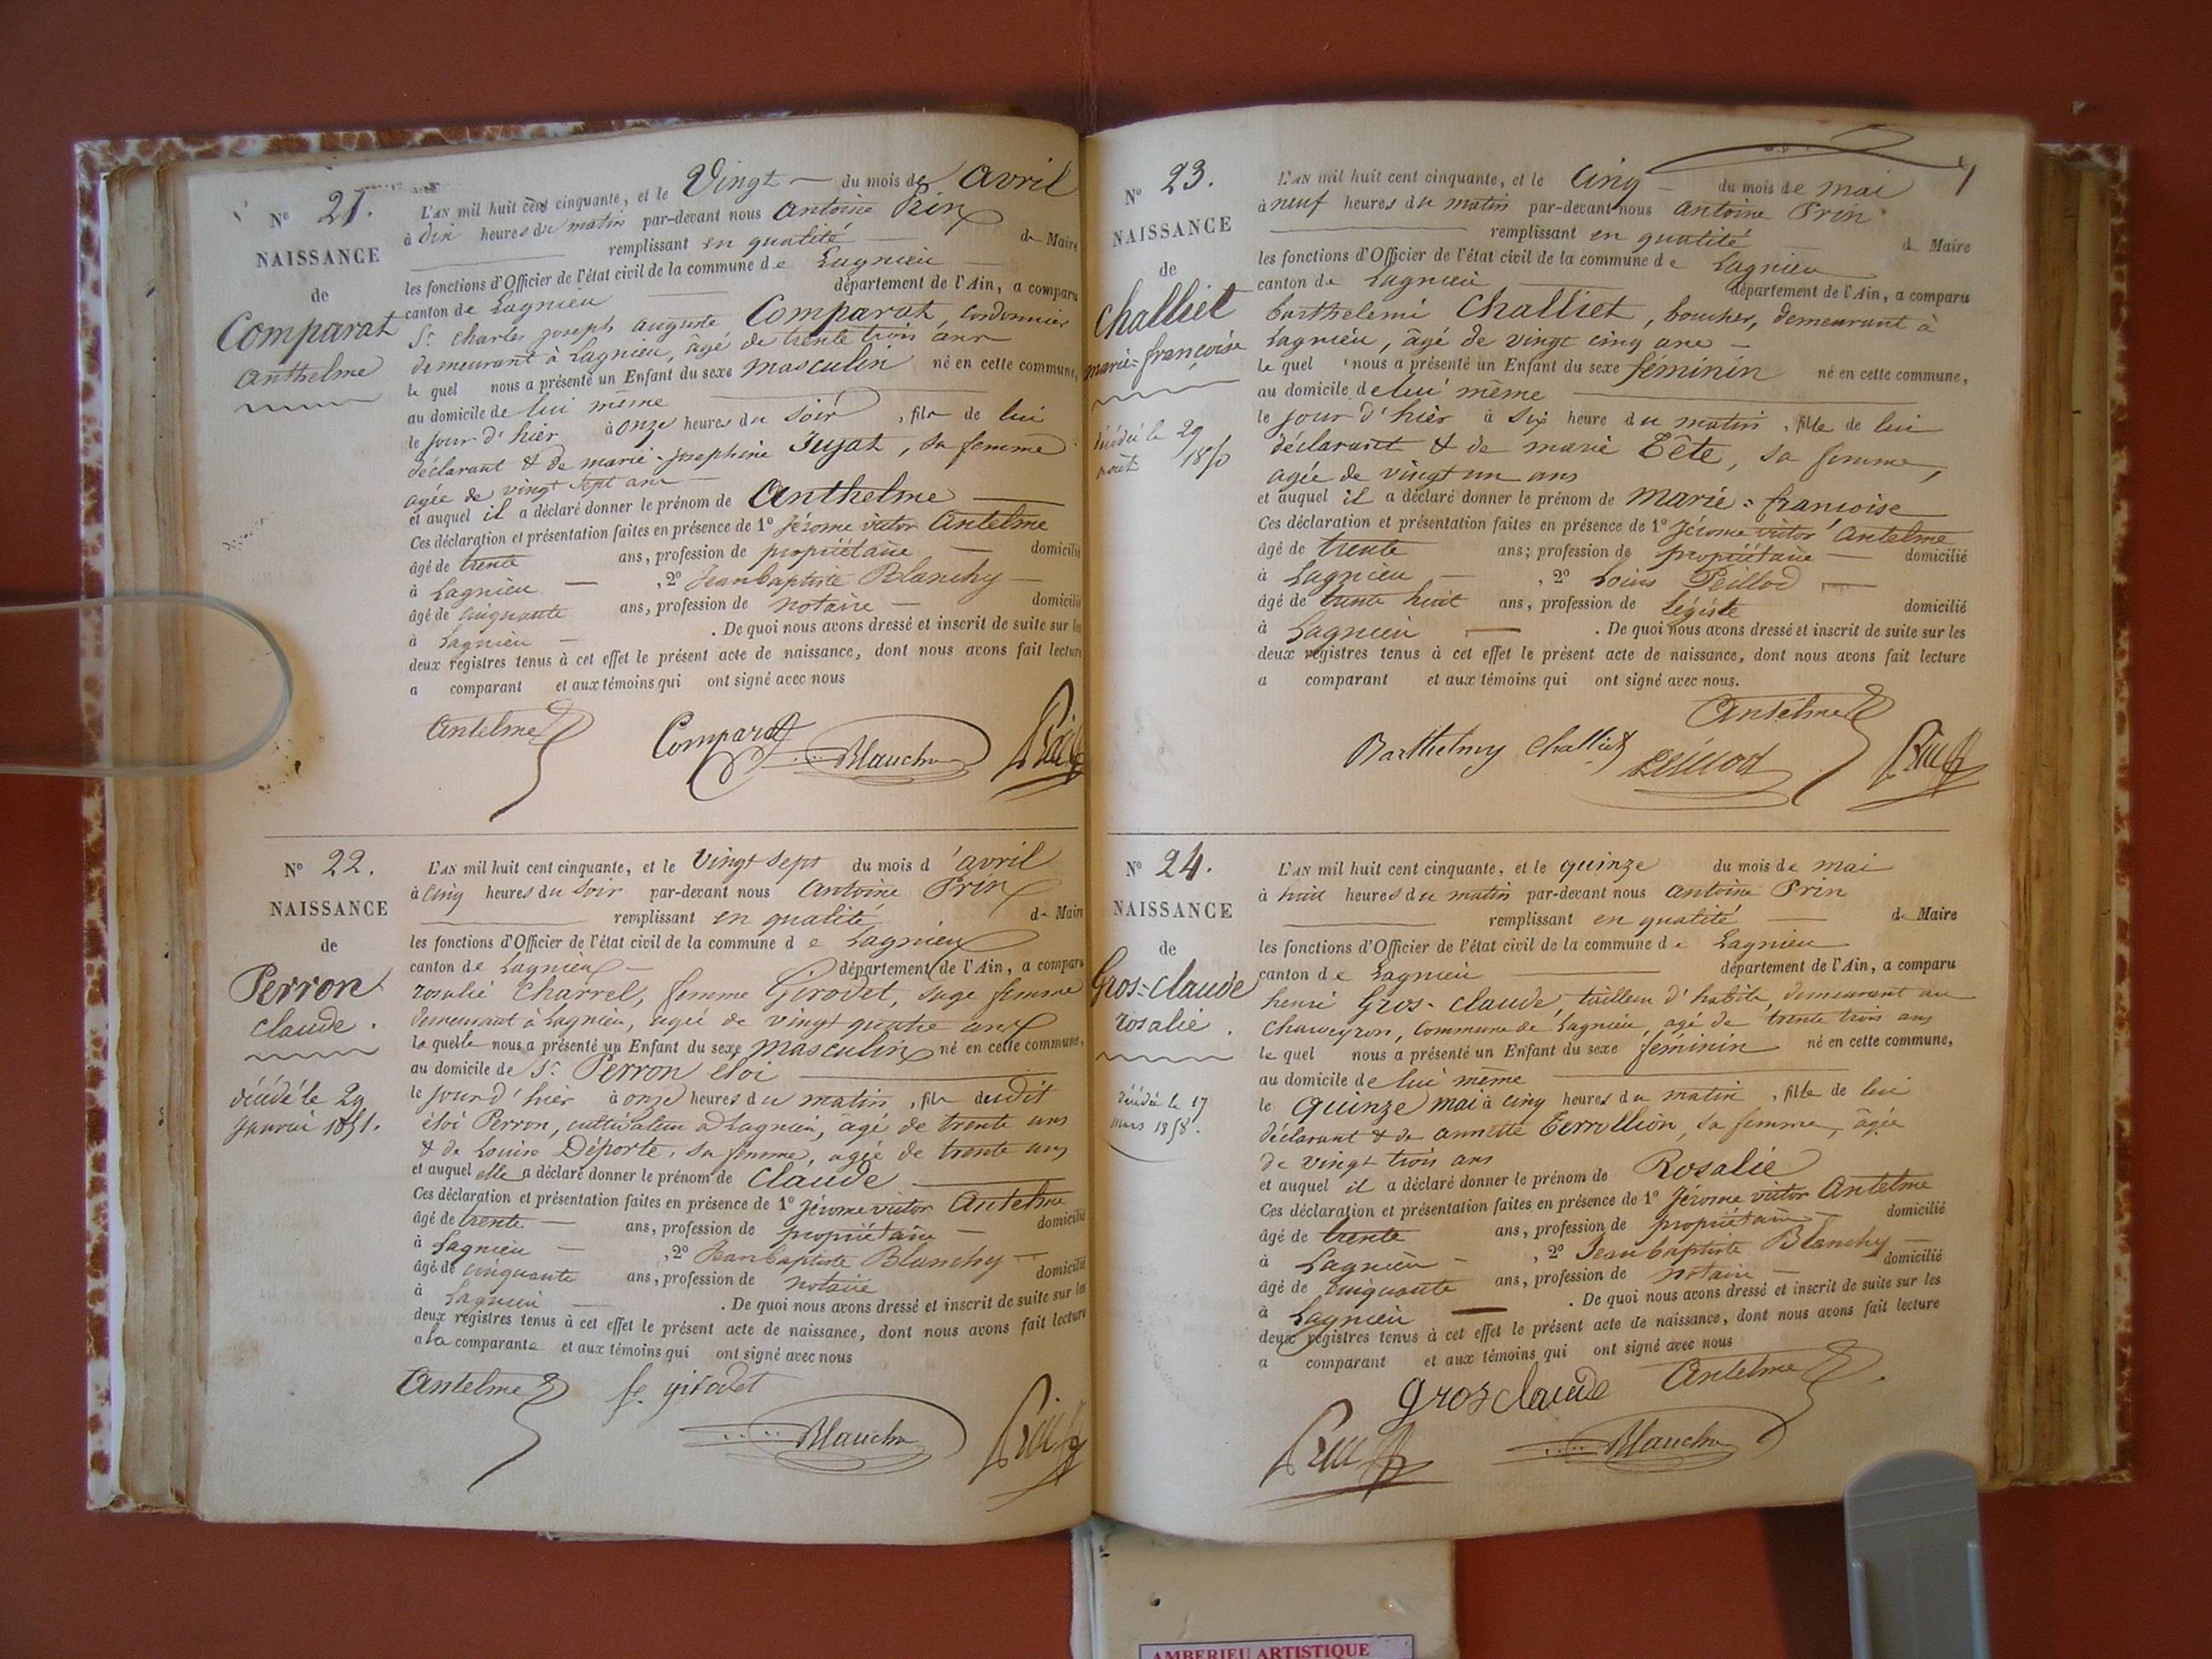 N° 21.
NAISSANCE
de
Comparat
Anthelme
L'AN mil huit cent cinquante, et le Vingt du mois de Avril
à dix heures du matin par-devant nous Antoine Prin
remplissant en qualité de Maire
les fonctions d'Officier de l'état civil de la commune de Lagnieu
canton de Lagnieu département de l'Ain, a comparu
Sr. Charles joseph auguste Comparat, Cordonnier
demeurant à Lagnieu, âgé de trente trois ans
le quel nous a présenté un Enfant du sexe masculin né en cette commune,
au domicile de lui même
le jour d'hier à onze heures du soir, fils de lui
déclarant & de marie-josephine Jujat, sa femme
agée de vingt sept ans
et auquel il a déclaré donner le prénom de Anthelme
Ces déclaration et présentation faites en présence de 1° Jérome victor Antelme
âgé de trente ans, profession de propriétaire domicilié
à Lagnieu, 2° Jean baptiste Blanchy
âgé de cinquante ans, profession de notaire domicilié
à Lagnieu. De quoi nous avons dressé et inscrit de suite sur les
deux registres tenus à cet effet le présent acte de naissance, dont nous avons fait lecture
a comparant et aux témoins qui ont signé avec nous
Antelme Comparat Blanchy Prin
N° 22.
NAISSANCE
de
Perron
claude.
décédé le 29
janvier 1851.
L'AN mil huit cent cinquante, et le Vingt sept du mois d'avril
à cinq heures du soir par-devant nous Antoine Prin
remplissant en qualité de Maire
les fonctions d'Officier de l'état civil de la commune de Lagnieu
canton de Lagnieu département de l'Ain, a comparu
rosalie Charrel, femme Girodet, sage femme
demeurant à Lagnieu, agée de vingt quatre ans
la quelle nous a présenté un Enfant du sexe masculin né en cette commune,
au domicile de Sr. Perron éloi
le jour d'hier à onze heures du matin, fils dudit
éloi Perron, cultivateur à Lagnieu, âgé de trente ans
& de Louise Déporte, sa femme, agée de trente ans
et auquel elle a déclaré donner le prénom de Claude
Ces déclaration et présentation faites en présence de 1° Jérome victor Antelme
âgé de trente ans, profession de propriétaire domicilié
à Lagnieu, 2° Jean baptiste Blanchy
âgé de cinquante ans, profession de notaire domicilié
à Lagnieu. De quoi nous avons dressé et inscrit de suite sur les
deux registres tenus à cet effet le présent acte de naissance, dont nous avons fait lecture
a la comparante et aux témoins qui ont signé avec nous
Antelme fe. girodet
Blanchy Prin
N° 23.
NAISSANCE
de
Challiet
marie=françoise
décédée le 29
août 1850
L'AN mil huit cent cinquante, et le Cinq du mois de mai
à neuf heures du matin par-devant nous Antoine Prin
remplissant en qualité de Maire
les fonctions d'Officier de l'état civil de la commune de Lagnieu
canton de Lagnieu département de l'Ain, a comparu
barthelemi Challiet, boucher, demeurant à
Lagnieu, âgé de vingt cinq ans
le quel nous a présenté un Enfant du sexe féminin né en cette commune,
au domicile de lui même
le jour d'hier à six heure du matin, fille de lui
déclarant & de marie Tête, sa femme,
agée de vingt un ans
et auquel il a déclaré donner le prénom de marie=francoise
Ces déclaration et présentation faites en présence de 1° Jérome victor Antelme
âgé de trente ans; profession de propriétaire domicilié
à Lagnieu, 2° Loius Peillod
âgé de trente huit ans, profession de Légiste domicilié
à Lagnieu. De quoi nous avons dressé et inscrit de suite sur les
deux registres tenus à cet effet le présent acte de naissance, dont nous avons fait lecture
a comparant et aux témoins qui ont signé avec nous.
Antelme
Barthelmy Challiet Peillod Prin
N° 24.
NAISSANCE
de
Gros=claude
rosalie.
décédée le 17
mars 1858.
L'AN mil huit cent cinquante, et le quinze du mois de mai
à huit heures du matin par-devant nous Antoine Prin
remplissant en qualité de Maire
les fonctions d'Officier de l'état civil de la commune de Lagnieu
canton de Lagnieu département de l'Ain, a comparu
henri Gros-claude, tailleur d'habits, demeurant au
Chaweyron, Commune de Lagnieu, agé de trente trois ans
le quel nous a présenté un Enfant du sexe féminin né en cette commune,
au domicile de lui même
le Quinze mai à cinq heures du matin, fille de lui
déclarant & de annette Terrollion, sa femme, âgée
de vingt trois ans
et auquel il a déclaré donner le prénom de Rosalie
Ces déclaration et présentation faites en présence de 1° Jérome victor Antelme
âgé de trente ans, profession de propriétaire domicilié
à Lagnieu, 2° Jean baptiste Blanchy
âgé de cinquante ans, profession de notaire domicilié
à Lagnieu. De quoi nous avons dressé et inscrit de suite sur les
deux registres tenus à cet effet le présent acte de naissance, dont nous avons fait lecture
a comparant et aux témoins qui ont signé avec nous
Grosclaude Antelme
Prin Blanchy
AMBERIEU ARTISTIQUE